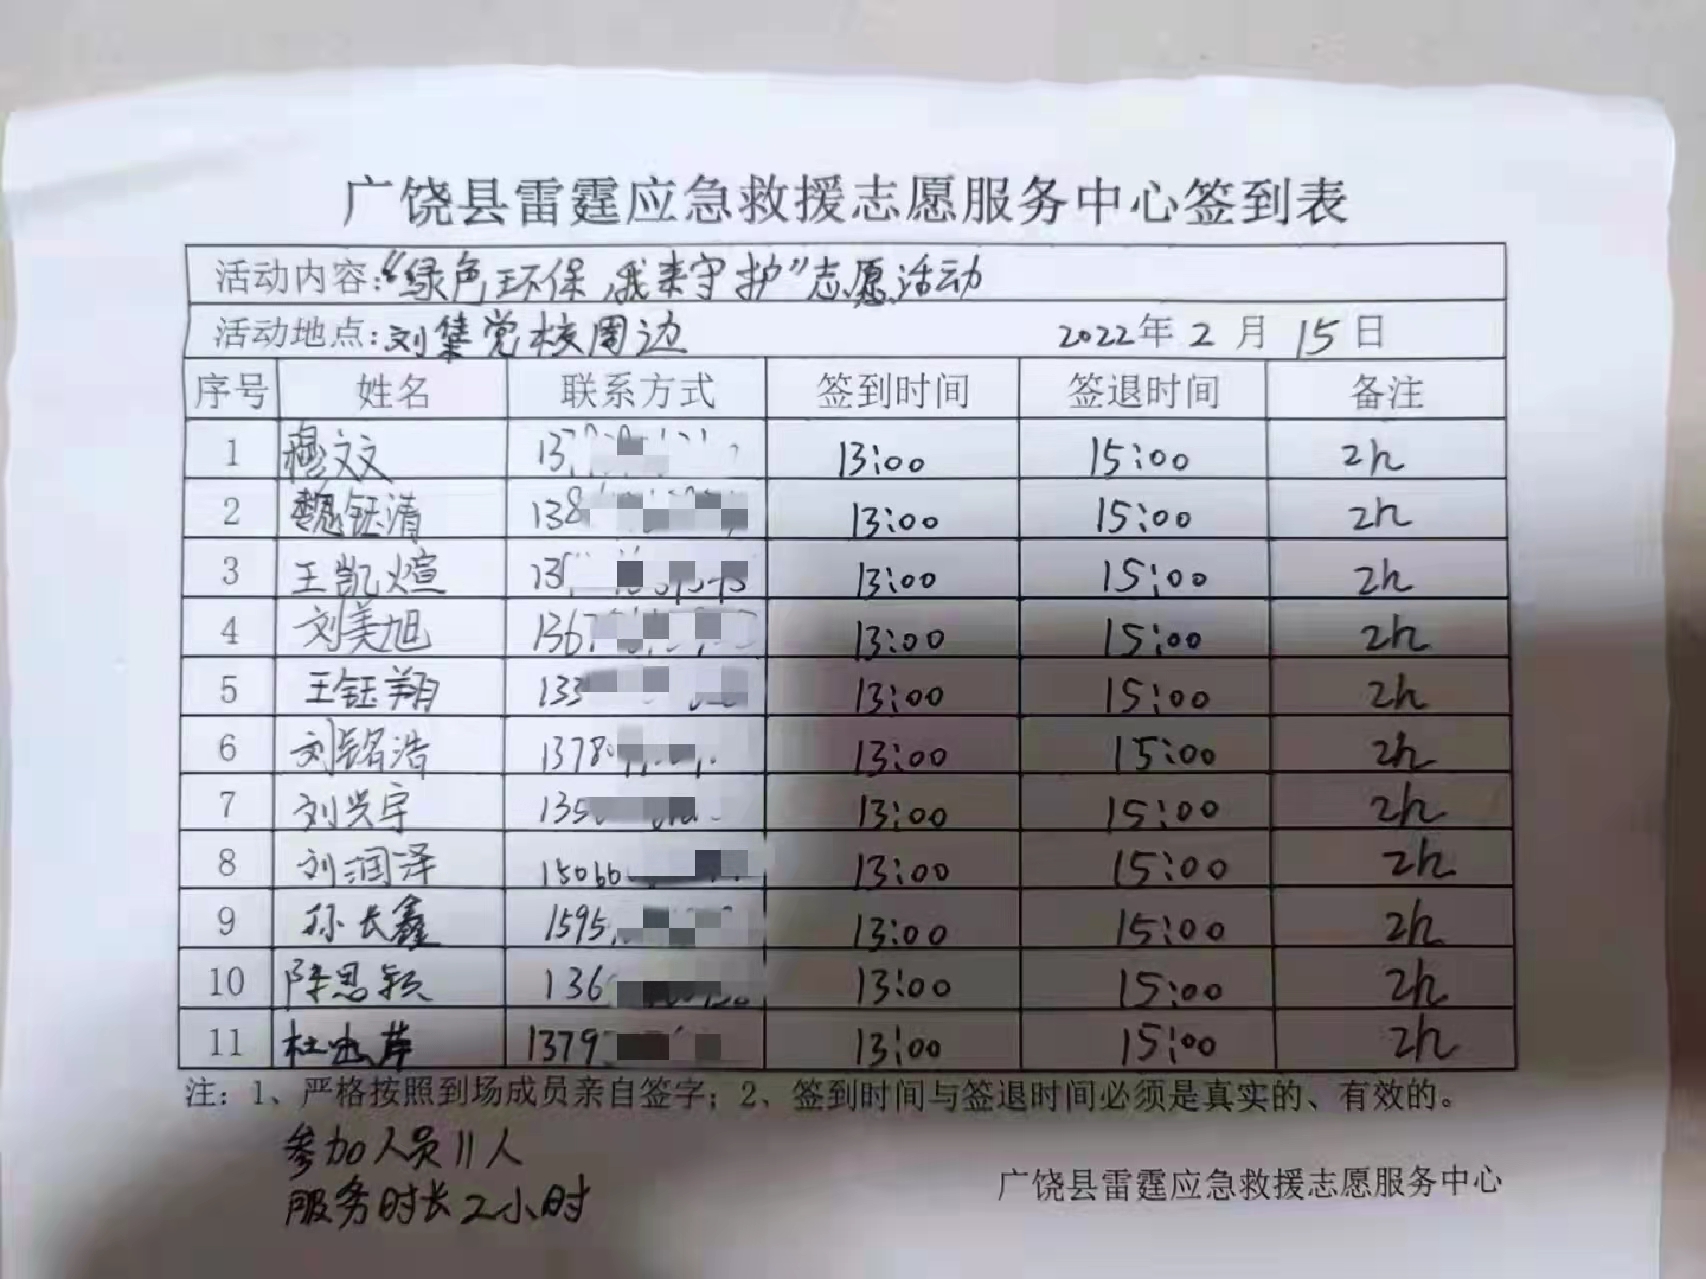 广饶县雷霆应急救援志愿服务中心签到表
活动内容:“绿色环保,我来守护”志愿活动
活动地点:刘集党校周边 2022年2月15日
序号 姓名 联系方式 签到时间 签退时间 备注
1 穆文文 13 13:00 15:00 2h
2 魏钰清 138 13:00 15:00 2h
3 王凯煊 13 13:00 15:00 2h
4 刘美旭 136 13:00 15:00 2h
5 王钰翔 133 13:00 15:00 2h
6 刘铭浩 1378 13:00 15:00 2h
7 刘兴宇 135 13:00 15:00 2h
8 刘润泽 15066 13:00 15:00 2h
9 孙长鑫 1595 13:00 15:00 2h
10 陈思颖 136 13:00 15:00 2h
11 杜 1379 13:00 15:00 2h
注:1、严格按照到场成员亲自签字;2、签到时间与签退时间必须是真实的、有效的。
参加人员11人
服务时长2小时
广饶县雷霆应急救援志愿服务中心